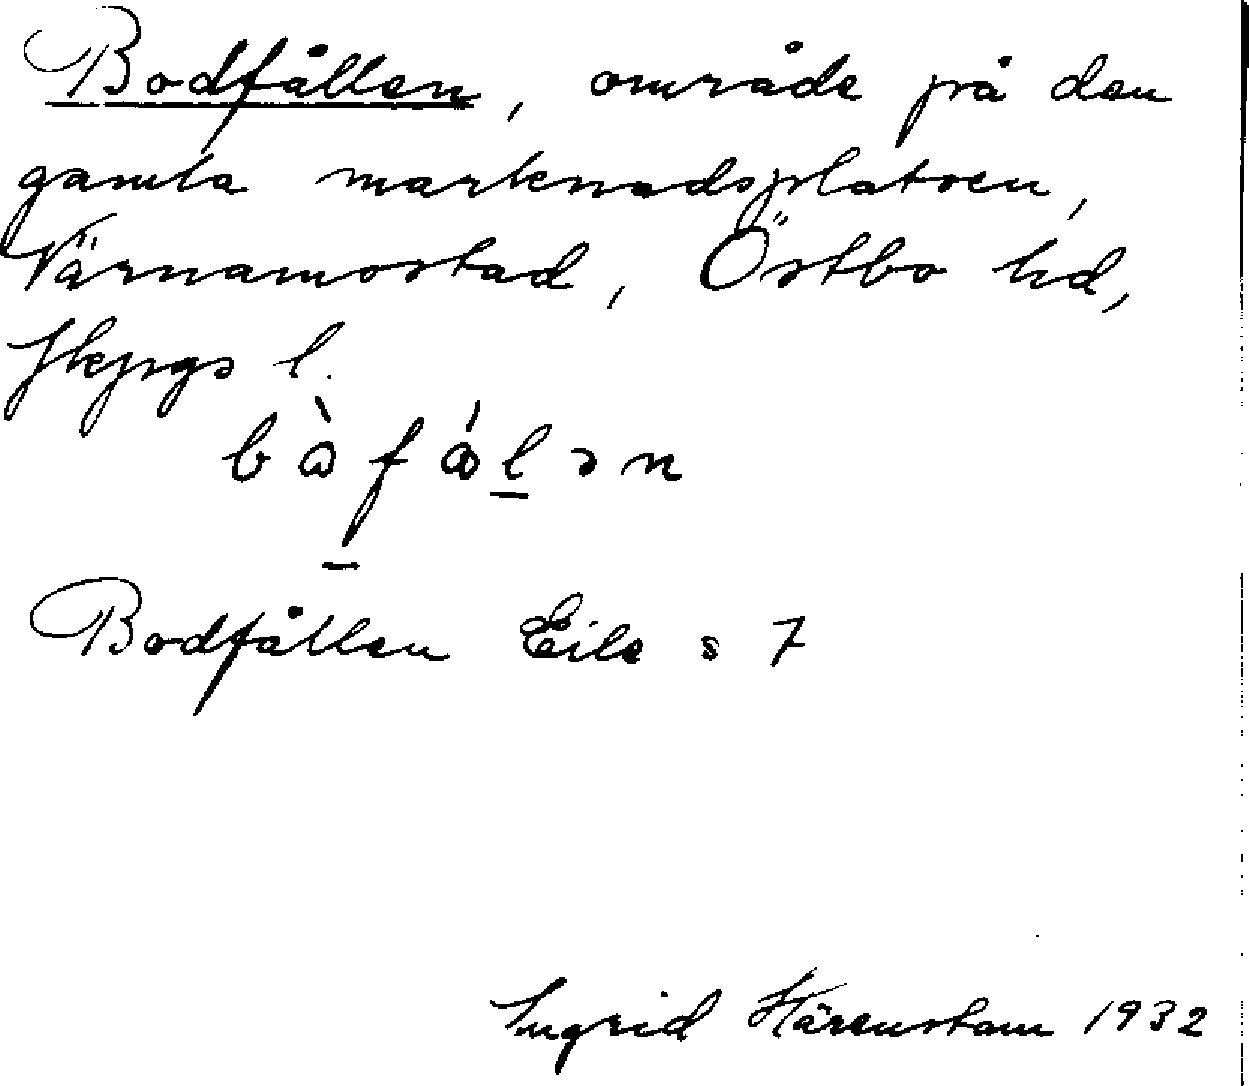 Bodfållen, område på den
gamla marknadsplatsen,
Värnamostad, Östbo hd,
Jkpgs l.
Bodfållen Eile s 7
Ingrid Härenstam 1932